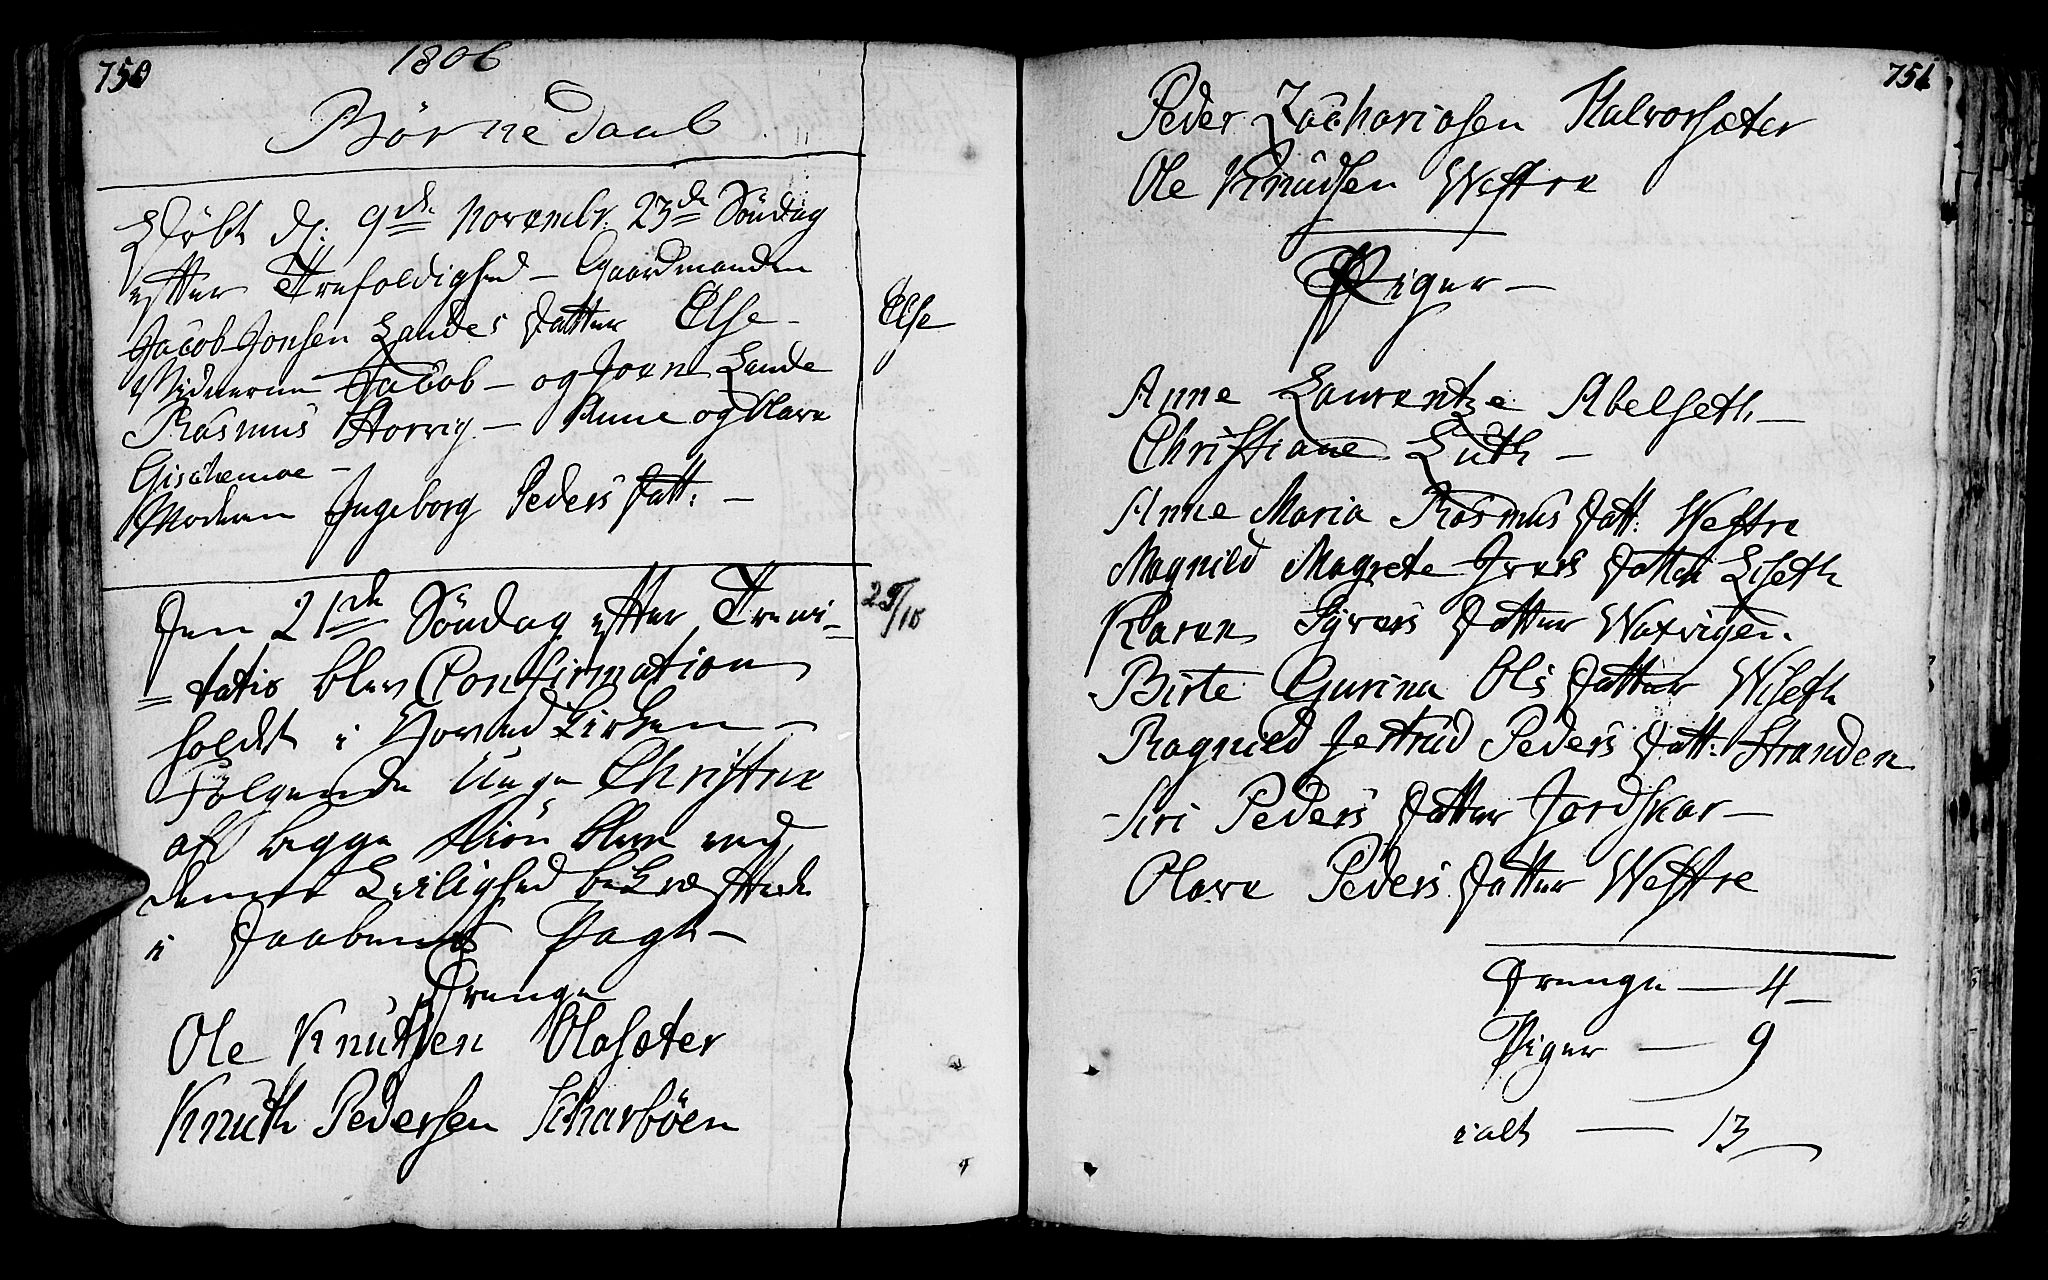 750
1806
Börnedaab
Döbt d: 9de Novembr. 23de Söndag
efter Trefoldighed – Gaardmanden
Jacob Jonsen Landes Datter Else – Else
Vidnerne Jacob – og Joen Lande
Rasmus Horvig – Anne og Olave
Gischemoe –
Moderen Ingeborg Peders Datt: –
Den 21de Söndag efter Trini= 25/10
=tatis blev Confirmation
holdet i Kirken –
Fölgende Unge Christne
af begge Kiön bleve ved
denne Leilighed bekræftede
i Daabens Pagt –
Drenge
Ole Knutsen Olasæter
Knuth Pedersen Scharböen
751
Peder Zachariasen Halvorsæter
Ole Knudsen Westre
Piger –
Anne Laurentze Abelseth –
Christiane Luth –
Anne Maria Rasmus Datt: Westre
Magnild Magrete Ivers Datter Liseth
Karen Syvers Datter Waxvigen.
Birte Gurina Ols Datter Wiseth
Ragnild Jertrud Peders Datt: Stranden
Siri Peders Datter Jordskar –
Olave Peders Datter Westre
Drenge – 4 –
Piger – 9
ialt – 13